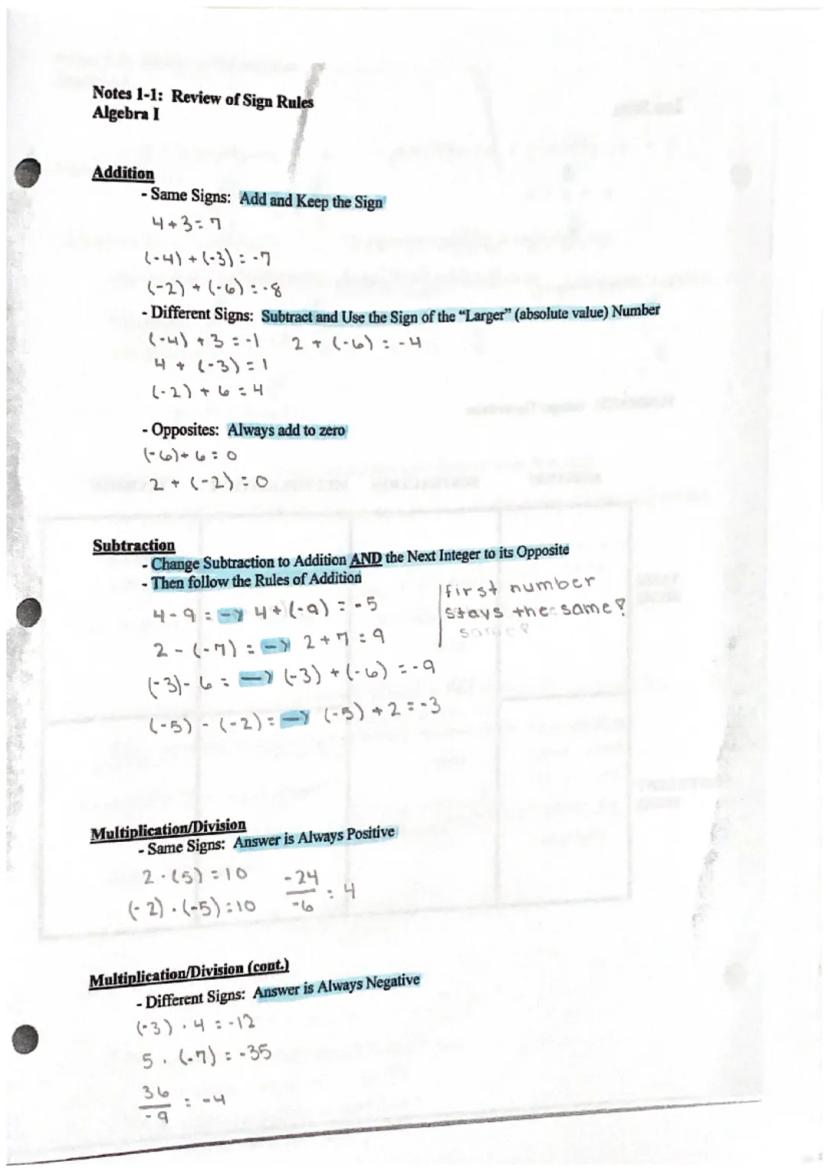 Notes 1-1: Review of Sign Rules
Algebra I
Addition
- Same Signs: Add and Keep the Sign
4+3=7
(-4) + (-3) = -7
(-2) + (-6) = -8
- Different Signs: Subtract and Use the Sign of the "Larger" (absolute value) Number
(-4) + 3 = -1 2 + (-6) = -4
4 + (-3) = 1
(-2) + 6 = 4
- Opposites: Always add to zero
(-6)+ 6 = 0
2 + (-2) = 0
Subtraction
- Change Subtraction to Addition AND the Next Integer to its Opposite
- Then follow the Rules of Addition
4 - 9 = → 4 + (-9) = -5
2 - (-7) = → 2 + 7 = 9
(-3) - 6 = → (-3) + (-6) = -9
(-5) - (-2) = → (-5) + 2 = -3
first number
stays the same?
same?
Multiplication/Division
- Same Signs: Answer is Always Positive
2 · (5) = 10
(-2) · (-5) = 10
-24
-6
= 4
Multiplication/Division (cont.)
- Different Signs: Answer is Always Negative
(-3) · 4 = -12
5 · (-7) = -35
36
-9
= -4